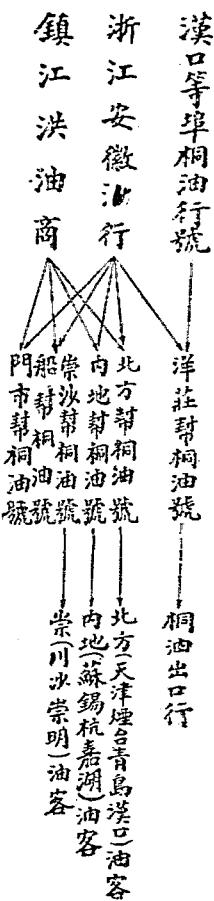 漢口等埠桐油行號
浙江安徽油行
鎮江洪油商
洋莊幫桐油號
北方幫桐油號
內地幫桐油號
崇沙幫桐油號
船幫桐油號
門市幫桐油號
桐油出口行
北方(天津煙台青島漢口)油客
內地(蘇錫杭嘉湖)油客
崇(川沙崇明)油客